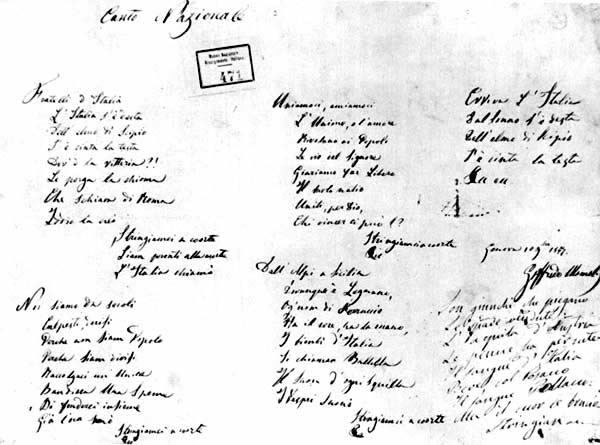 Canto Nazionale
Museo Nazionale
Risorgimento Italiano
471
Fratelli d'Italia
L'Italia s'è desta
Dell'elmo di Scipio
S'è cinta la testa
Dov'è la vittoria?!
Le porga la chioma
Che schiava di Roma
Iddio la creò
Stringiamci a coorte
Siam pronti alla morte
L'Italia chiamò
Noi siamo da secoli
Calpesti, derisi
Perchè non siam Popolo
Perchè siam divisi
Raccolgaci un'Unica
Bandiera Una Speme
Di fonderci insieme
Già l'ora suonò
Stringiamci a coorte
Uniamoci, amiamoci
L'Unione, e l'amore
Rivelano ai Popoli
Le vie del Signore
Giuriamo far Libero
Il suolo natio
Uniti, per Dio,
Chi vincer ci può!?
Stringiamci a coorte
Dall'Alpi a Sicilia
Dovunque è Legnano,
Ogn'uom di Ferruccio
Ha il core, ha la mano,
I bimbi d'Italia
Si chiaman Balilla
Il Suon d'ogni squilla
I Vespri Suonò
Stringiamci a coorte
Evviva l'Italia
Dal sonno s'è desta
Dell'elmo di Scipio
S'è cinta la testa
Genova 10
Goffredo Mameli
Son giunchi che piegano
Le spade vendute
L'Aquila d'Austria
Le penne ha perdute
Il sangue d'Italia
Bevé, col
Il sangue Polacco
Ma il cuor le bruciò
Stringiamci